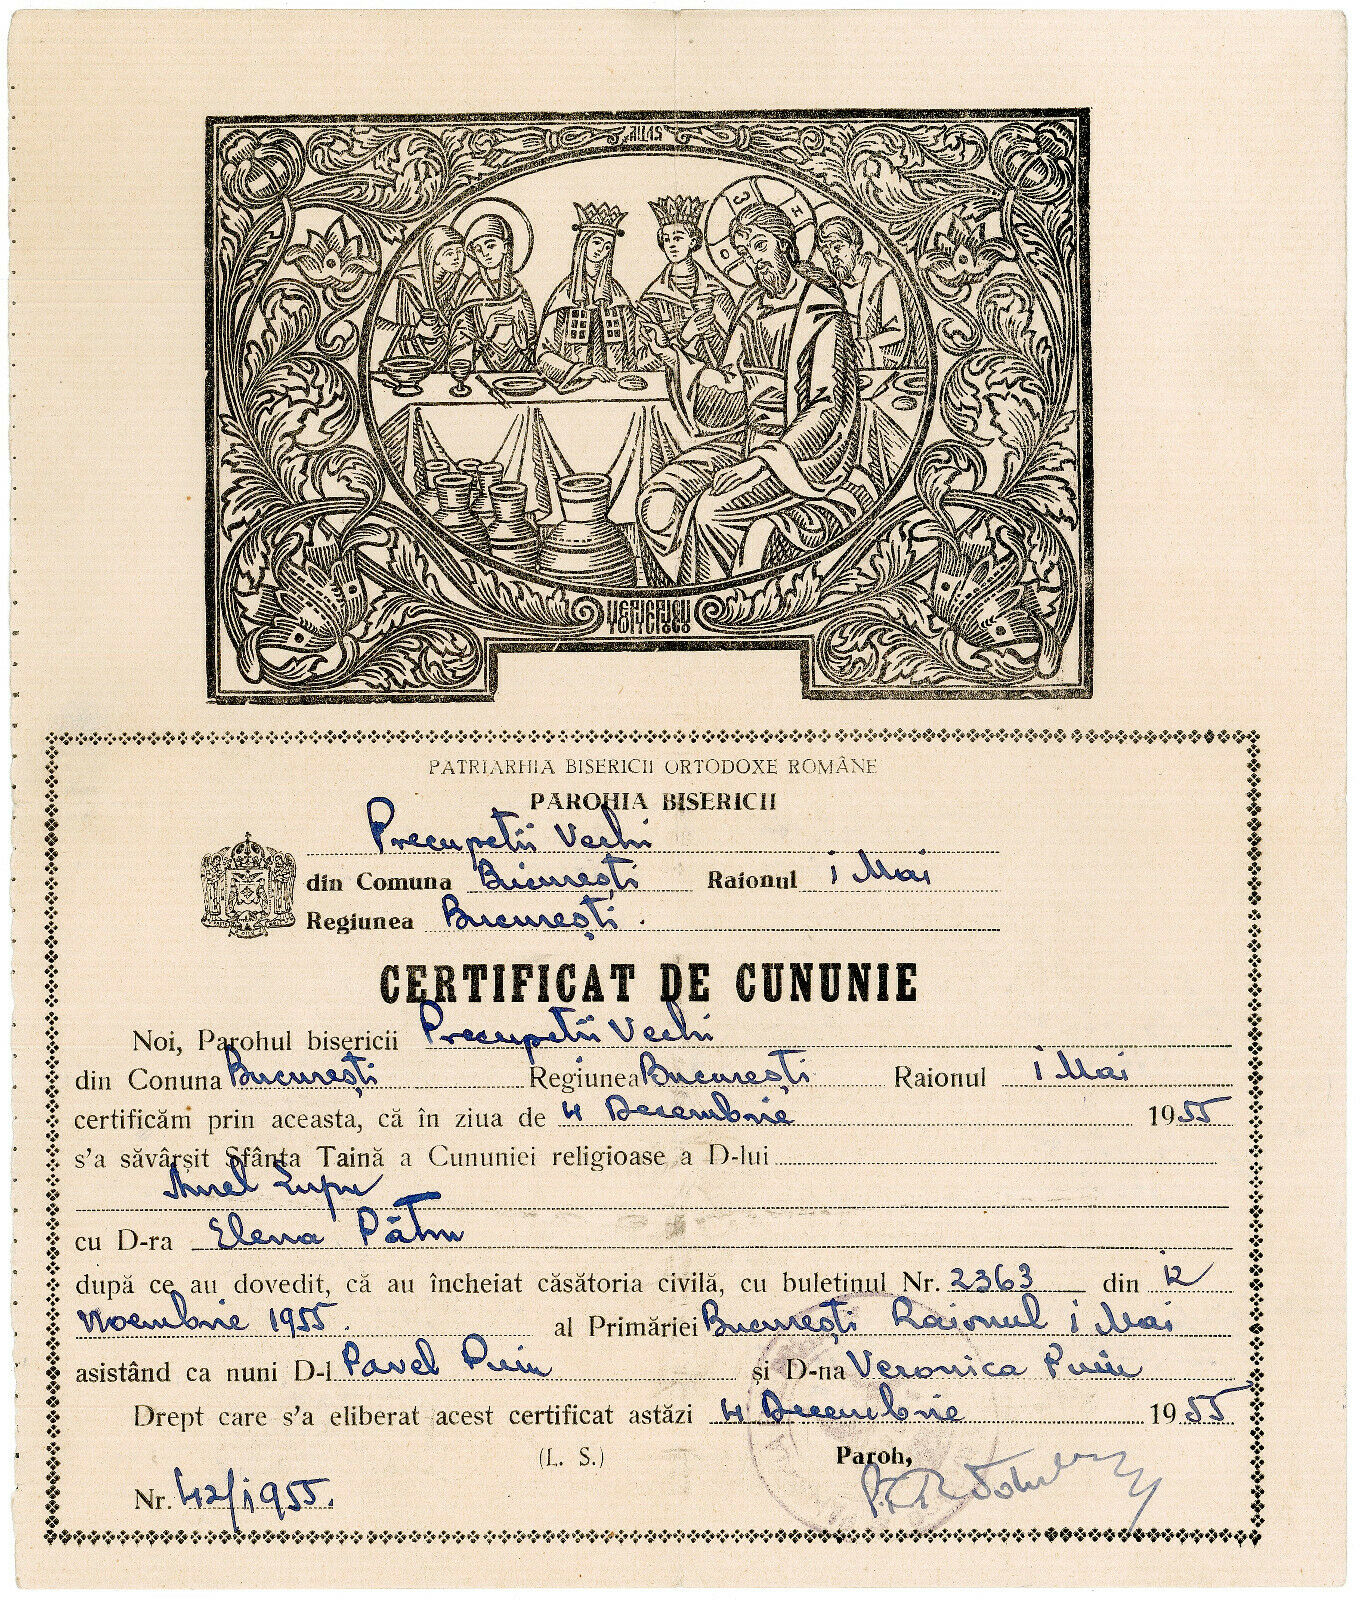 PATRIARHIA BISERICII ORTODOXE ROMÂNE
PAROHIA BISERICII
Precupeții Vechi
din Comuna București Raionul 1 Mai
Regiunea București.
CERTIFICAT DE CUNUNIE
Noi, Parohul bisericii Precupeții Vechi
din Conuna București Regiunea București Raionul 1 Mai
certificăm prin aceasta, că în ziua de 4 Decembrie 1955
s'a săvârșit Sfânta Taină a Cununiei religioase a D-lui
Aurel Lupu
cu D-ra Elena Pătru
după ce au dovedit, că au încheiat căsătoria civilă, cu buletinul Nr. 2363 din 12
Noembrie 1955. al Primăriei București Raionul 1 Mai
asistând ca nuni D-l Pavel Puiu și D-na Veronica Puiu
Drept care s'a eliberat acest certificat astăzi 4 Decembrie 1955
(L. S.) Paroh,
Nr. 42/1955.